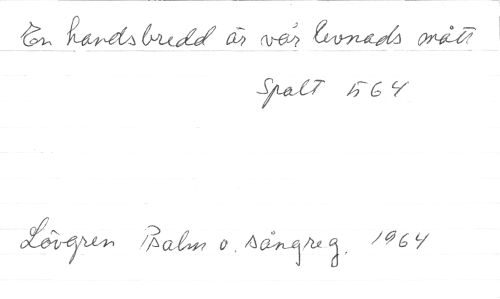 En handsbredd är vår levnads mått
Spalt 564
Lövgren Psalm o. sångreg. 1964